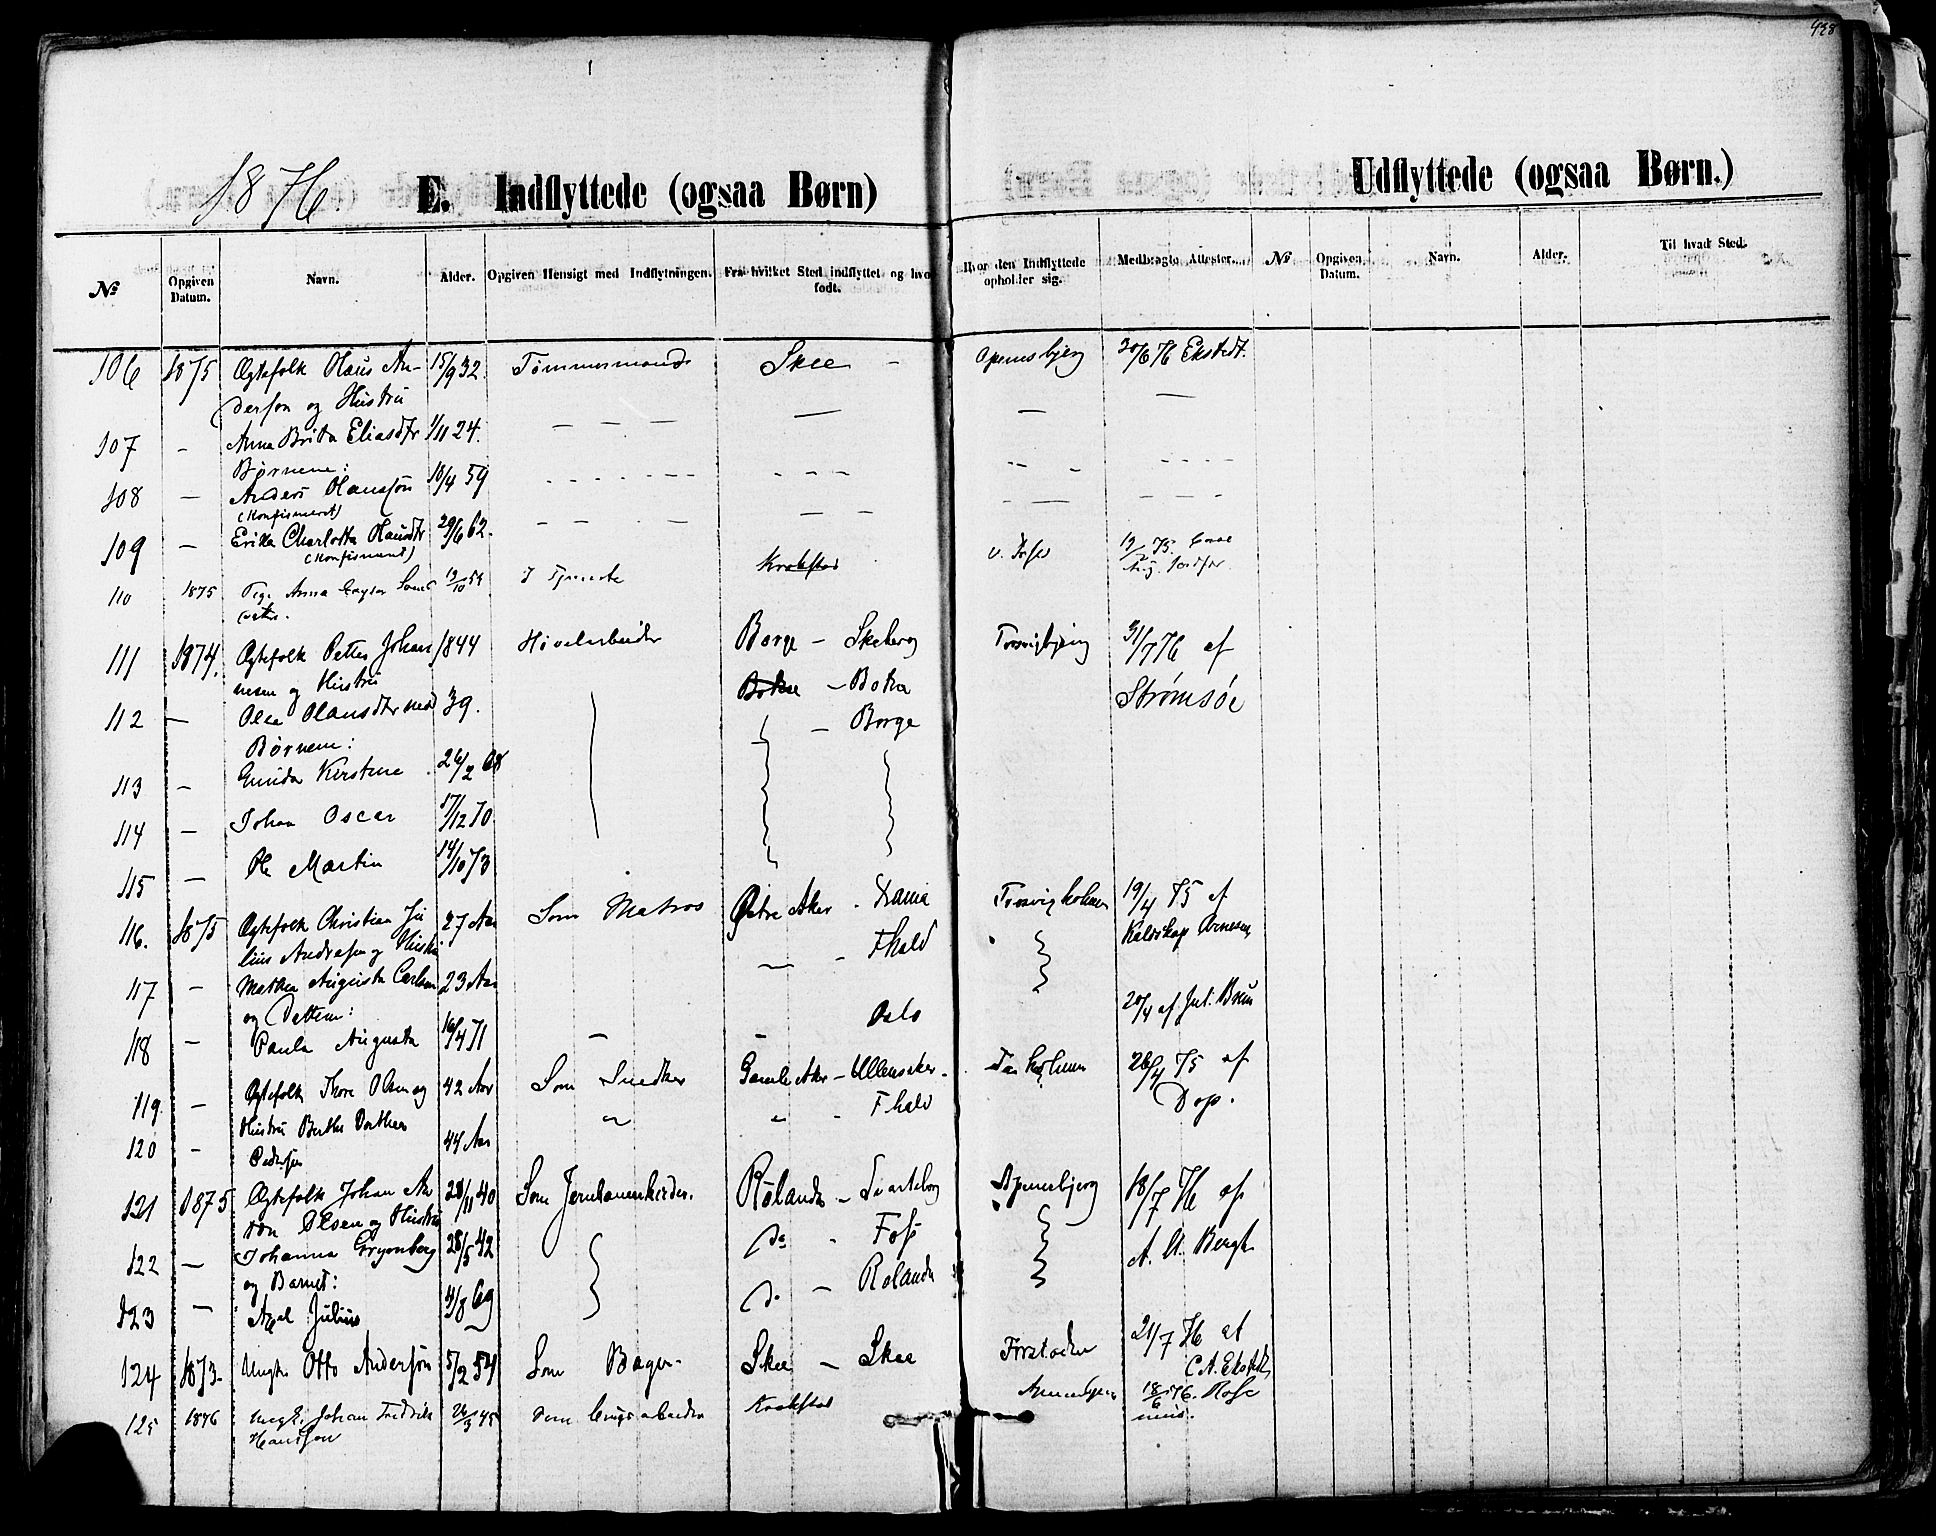 438
1876.
E. Indflyttede (ogsaa Børn)
Udflyttede (ogsaa Børn.)
№ Opgiven Datum. Navn. Alder. Opgiven Hensigt med Indflytningen. Fra hvilket Sted indflyttet og hvor født. Hvor den Indflyttede opholder sig. Medbragte Attester. № Opgiven Datum. Navn. Alder. Til hvad Sted.
106 1875 Ægtefolk Olaus An- 15/9 32. Tømmermand Skee - 30/6 76 Ekstedt.
derson og Hustru
107 - Anna Brita Eliasdtr 1/11 24. — — — — — —
Børnene:
108 - Anders Olausson 10/4 59
(konfirmeret)
109 - Erika Charlotta Olausdtr 29/6 62.
(konfirmeret)
110 1875 Pige Anna 19/10 54 I Tjeneste Krokstad
111 1874. Ægtefolk Petter Johan 1844 Høvelarbeider Borge - Skeberg Trosvigbjerg 31/7 76 af
nesen og Hustru Strømsøe
112 - Olea Olausdtr med 39. - Botna
Børnene: - Borge
113 - Kirstine 26/2 68
114 - Johan Oscar 17/12 70
115 - Ole Martin 14/10 73
116. 1875 Ægtefolk Christian Ju 27 Aar Som Matros Østre Aker - Trosvigholmen 19/4 75 af
lius Andresen og Hustru Fhald
117 - Mathea Augusta 23 Aar
og Datteren: 20/4 af Jul. Bruun
118 - Paula Augusta 16/4 71 - - Oslo
119. - Ægtefolk Thore Olsen og 42 Aar Som Snedker Gamle Aker - Ullensaker. 26/4 75 af
Hustru Berthe Dorthea Fhald Dop.
120 - Pedersen 44 Aar
121 1875 Ægtefolk Johan An 28/11 40 Rølanda - Svarteborg Apenesbjerg 18/7 76 af
ton Olsen og Hustru
122 - Johanna Grønberg 28/5 42 do - Foss A. U. Bergh
og Barnet:
123 - Axel Julius 4/8 69 do - Rølanda
124 1873. Ungk. Otto Anderson 5/2 54 Som Bager. Skee - Skee Forstaden 21/7 76 af
C. A. Ekstedt
125 1876 Ungk. Johan Fredrik 26/3 45 Som Krokstad 18/6 76.
Hansson